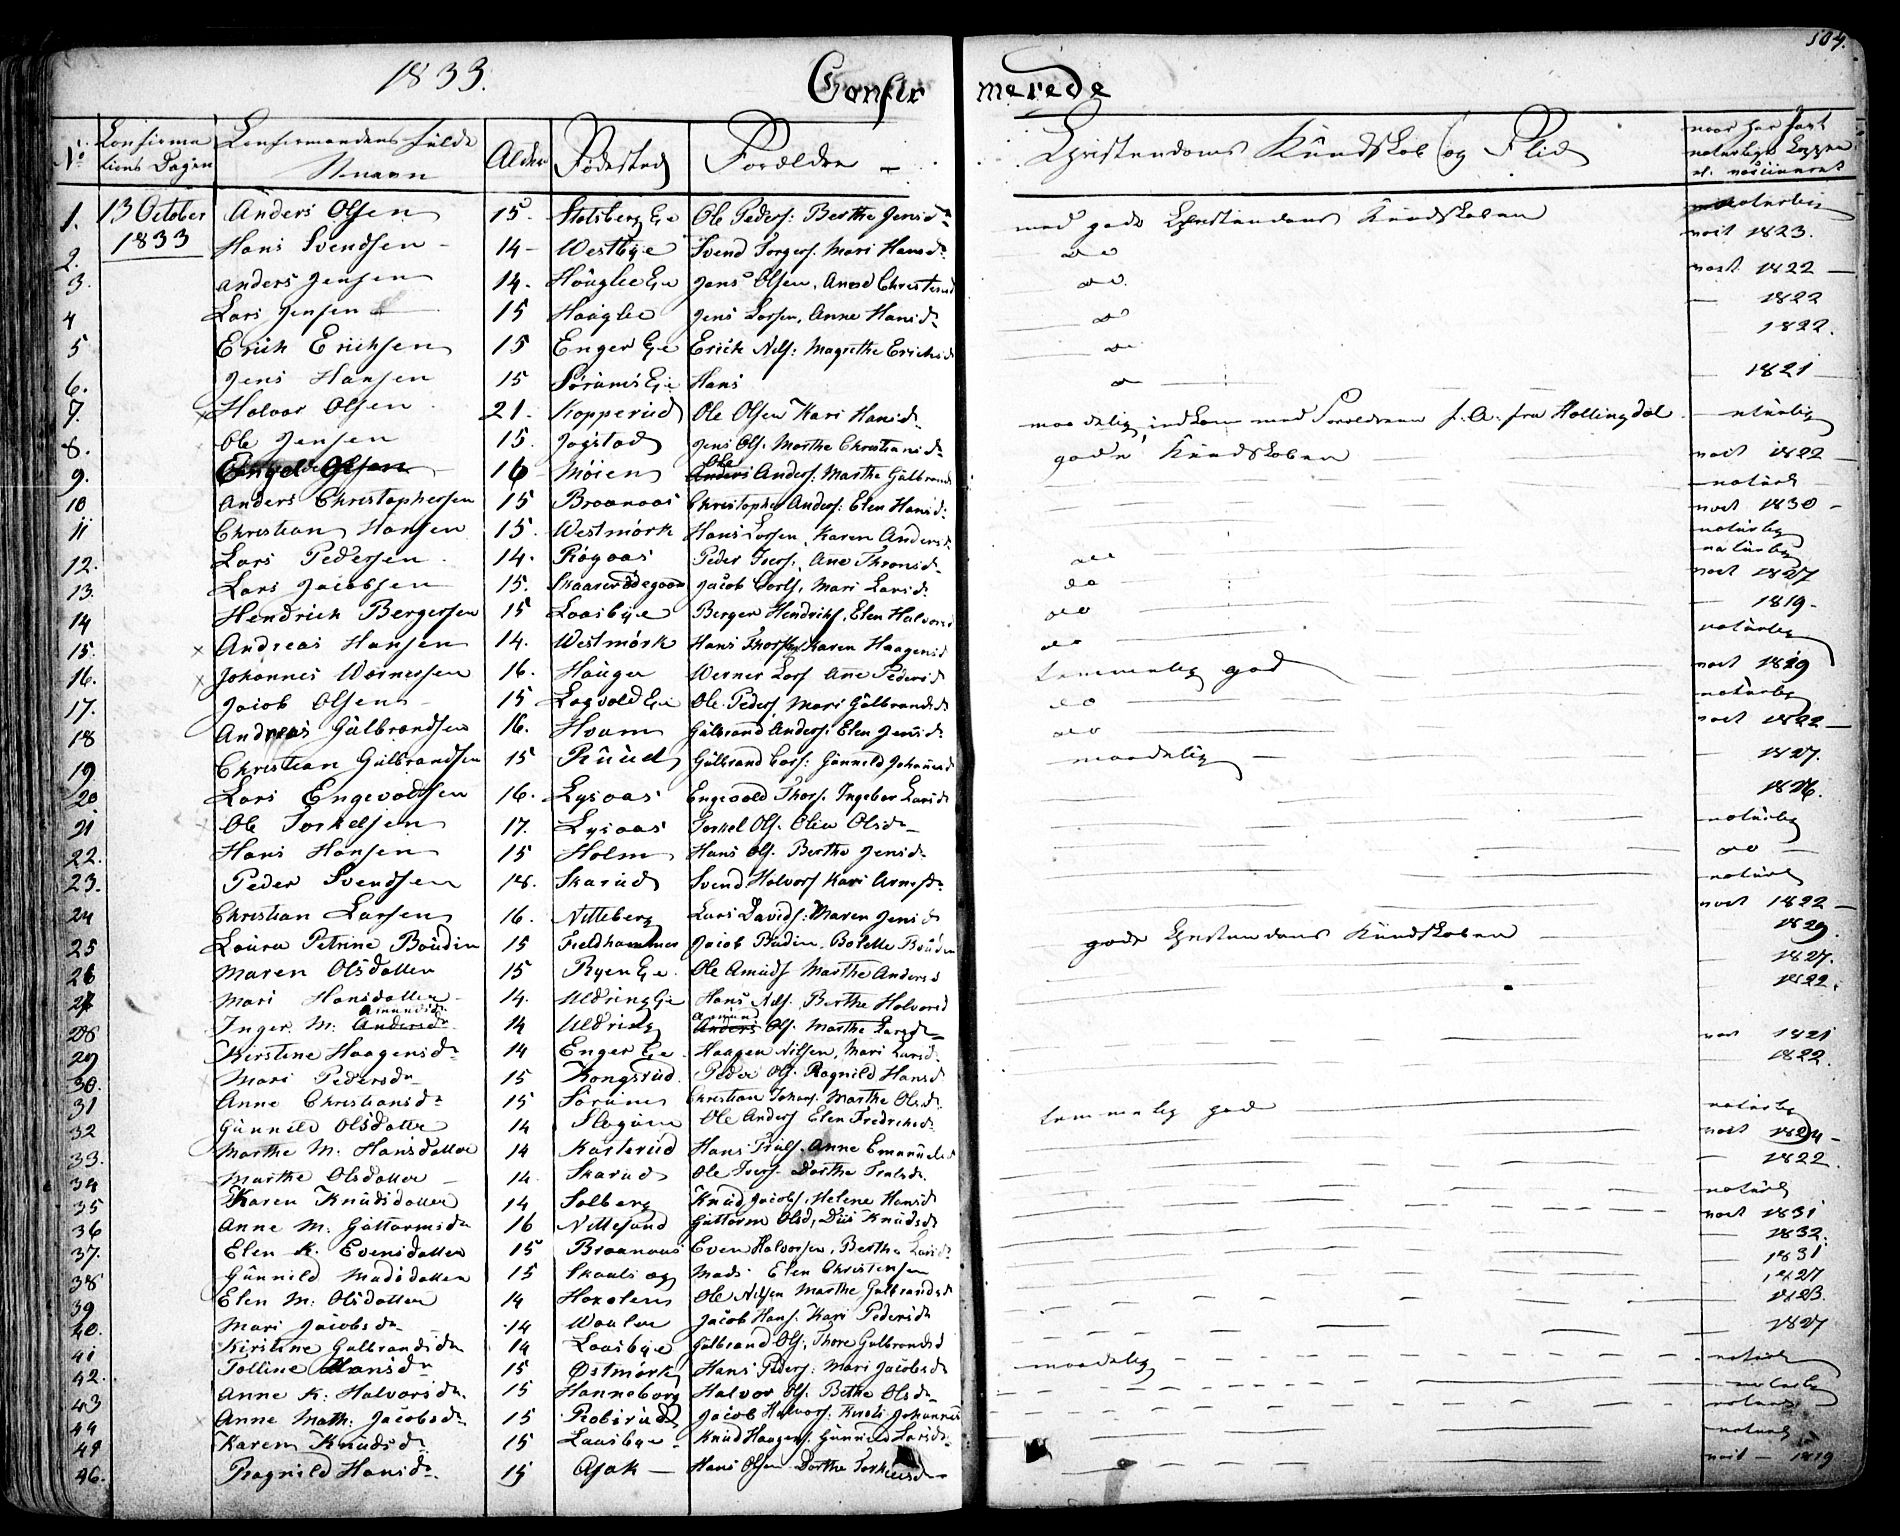 1833. Confir merede 504.
No Confirmations Dagen Confirmandens fulde Navn Alder Fødested Forældre Christendoms Kundskab og Flid naar har havt naturlige Kopper el. vaccineret
1. 13 October 1833 Anders Olsen 15. Stolsberg Eie Ole Peders: Berthe Jensdr med gode Christendoms Kundskaber naturlig
2. Hans Svendsen 14 Westbye Svend Torgers. Mari Hansdr do vacc 1823.
3. Anders Jensen 14. Hauglie Eie Jens Olsen, Anne Christensd do vacc 1822
4 Lars Jensen 15 Hauglie Jens Larsen, Anne Hansdr do 1822
5 Erich Erichsen 15 Enger Eie Erick Nils: Magrethe Erichsd do 1822.
6. Jens Hansen 15 Sørums Eie Hans do 1821
7. Halvor Olsen 21. Kopperud Ole Olsen Kari Hansdr maadelig, indkom med Forældrene f. A. fra Hallingdal naturlig
8. Ole Jensen 15. Jogstad Jens Ols. Marthe Christiansdr gode Kundskaber vacc 1822
9. Engel Olsen 16 Moien Ole Anders Anders: Marthe Gulbrands naturl
10 Anders Christophersen 15 Braanaas Christopher Anders: Elen Hansdr vacc 1830
11 Christian Hansen 15. Westmork Hans Larsen, Karen Andersdr naturlig
12. Lars Pedersen 14. Rogaas Peder Ivers. Ane Thronsdr do naturlig
13. Lars Jacobsen 15. Skaarer Ødegaard Jacob Carls, Mari Larsdr do vacc 1827
14 Hendrich Bergersen 15 Laasbye Berger Hendriks, Elen Halvorsd do 1819
15. Andreas Hansen 14. Westmork Hans Thorsten Karen Haagensd do naturlig
16. Johannes Wornersen 16. Hauger Werner Lars Ane Pedersd temmelig god vacc 1829
17. Jacob Olsen 15 Lagvold Eie Ole Peders Mari Gulbrandsd do naturlig
18 Andreas Gulbrandsen 16. Hvam Gulbrand Anders. Elen Jensdr do vacc 1822
19 Christian Gulbrandsen 15 Ruud Gulbrand Lars: Gunnild Johannesd maadelig 1827.
20 Lars Engevoldsen 16. Lysaas Engevold Thors. Ingebor Larsd 1826.
21 Ole Torkelsen 17. Lysaas Torkel Ols. Olea Olsdr naturlig
22. Hans Hansen 15 Holm Hans Ols. Berthe Jensdr do
23. Peder Svendsen 18. Skarud Svend Halvors Kari Arnesdr naturl
24 Christian Larsen 16. Nitteberg Lars Davids: Maren Jensd vacc 1822
25 Laura Petrine Boudin 15 Fieldhammer Jacob Budin. Bolette Boudin gode Christendoms Kundskaber 1829.
26 Maren Olsdatter 15 Ryen Eie. Ole Amunds Marthe Andersd 1827.
27 Mari Hansdatter 14. Uldring Eie Hans Nils. Berthe Halvorsd 1822.
28 Inger M. Andersdr Amundsdr 14 Uldring Anders Amund Ols. Marthe Larsdr vacc 1821
29 Kirstine Haagensdr 14 Enger Eie Haagen Nilsen, Mari Larsdr 1822.
30. Mari Pedersdr 15 Kongsrud Peder Ols. Ragnild Hansd
31 Anne Christiansdr 15 Sørum Christian Johans. Marthe Olsd.
32 Gunnild Olsdatter 14 Slogum Ole Anders Elen Fredrichsd temmelig gode naturlig
33. Marthe M. Hansdatter 14 Karterud Hans Truls. Anne Emanuelsd vacc 1824
34 Marthe Olsdatter 14. Skarud Ole Ivers. Dorthe Trulsdr 1822.
35 Karen Knudsdatter 14 Solberg Knud Jacobs, Helene Hansd naturl
36 Anne M. Guttormsdr 16 Nittesund Guttorm Olsd, Dús Knudsd vacc 1831
37. Elen K. Evensdatter 15 Braanaas Even Halvorsen, Berthe Larsdr 1832.
38 Gunnild Madsdatter 15 Skouls og Mads Elen Christensen 1831
39 Elen M. Olsdatter 14 Haxolen Ole Nilsen Marthe Gulbrandsd 1827
40. Mari Jacobsdr 14 Waaler Jacob Hans. Kari Pedersdr 1823.
41 Kirstine Gulbrandsdr 14 Laasbye Gulbrand Ols, Thore Gulbrandsd 1827
42. Tolline Hansdr 15 Østmork Hans Peders: Mari Jacobsd maadelig naturl
43 Anne K. Halvorsdr 15 Hanneborg Halvor Ols. Bethe Olsdr naturlig
44 Anne Math. Jacobsdr 15 Robsrud Jacob Halvors. Johannes naturl
45 Karen Knudsdr 15 Laasbye Knud Haagens. Gunnild Larsdr naturl
46. Ragnild Hansdr 15 Asak Hans Olsen Dorthe Torkildsdr vacc 1819